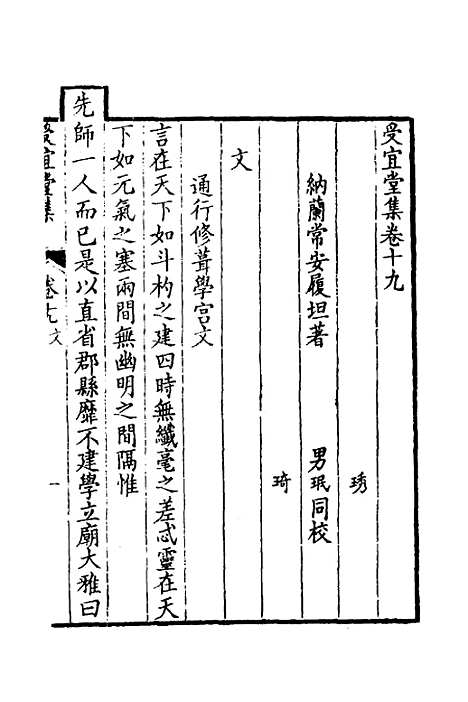 受宜堂集卷十九
琇
納蘭常安履坦著 男珉同校
琦
文
通行修葺學宮文
言在天下如斗杓之建四時無纖毫之差忒靈在天
下如元氣之塞兩間無幽明之間隔惟
先師一人而已是以直省郡縣靡不建學立廟大雅曰
受宜堂集 卷十九 文 一